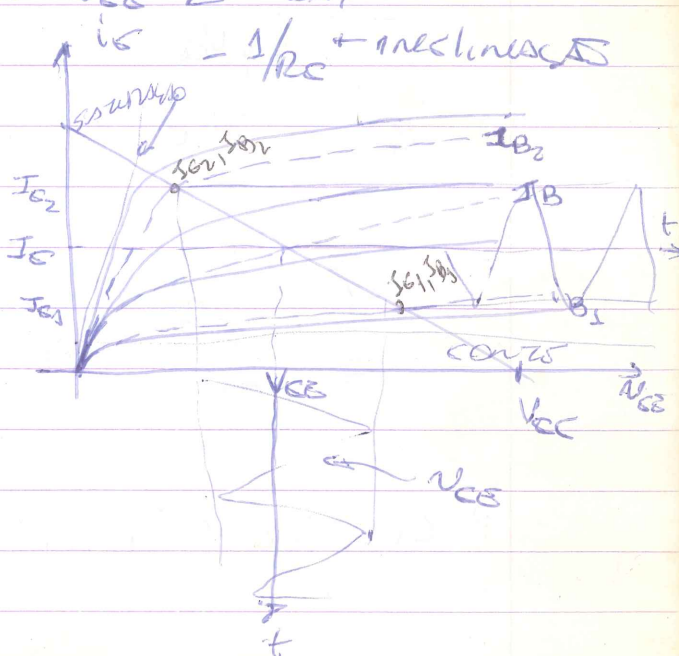 i_C
- 1/RC ← INCLINAÇÃO
SATURAÇÃO
I_C2, I_B2
I_B2
I_C2
I_B
t
I_C
I_C1, I_B1
I_C1
B_1
CORTE
V_CE
V_CC
v_CE
v_CE
t